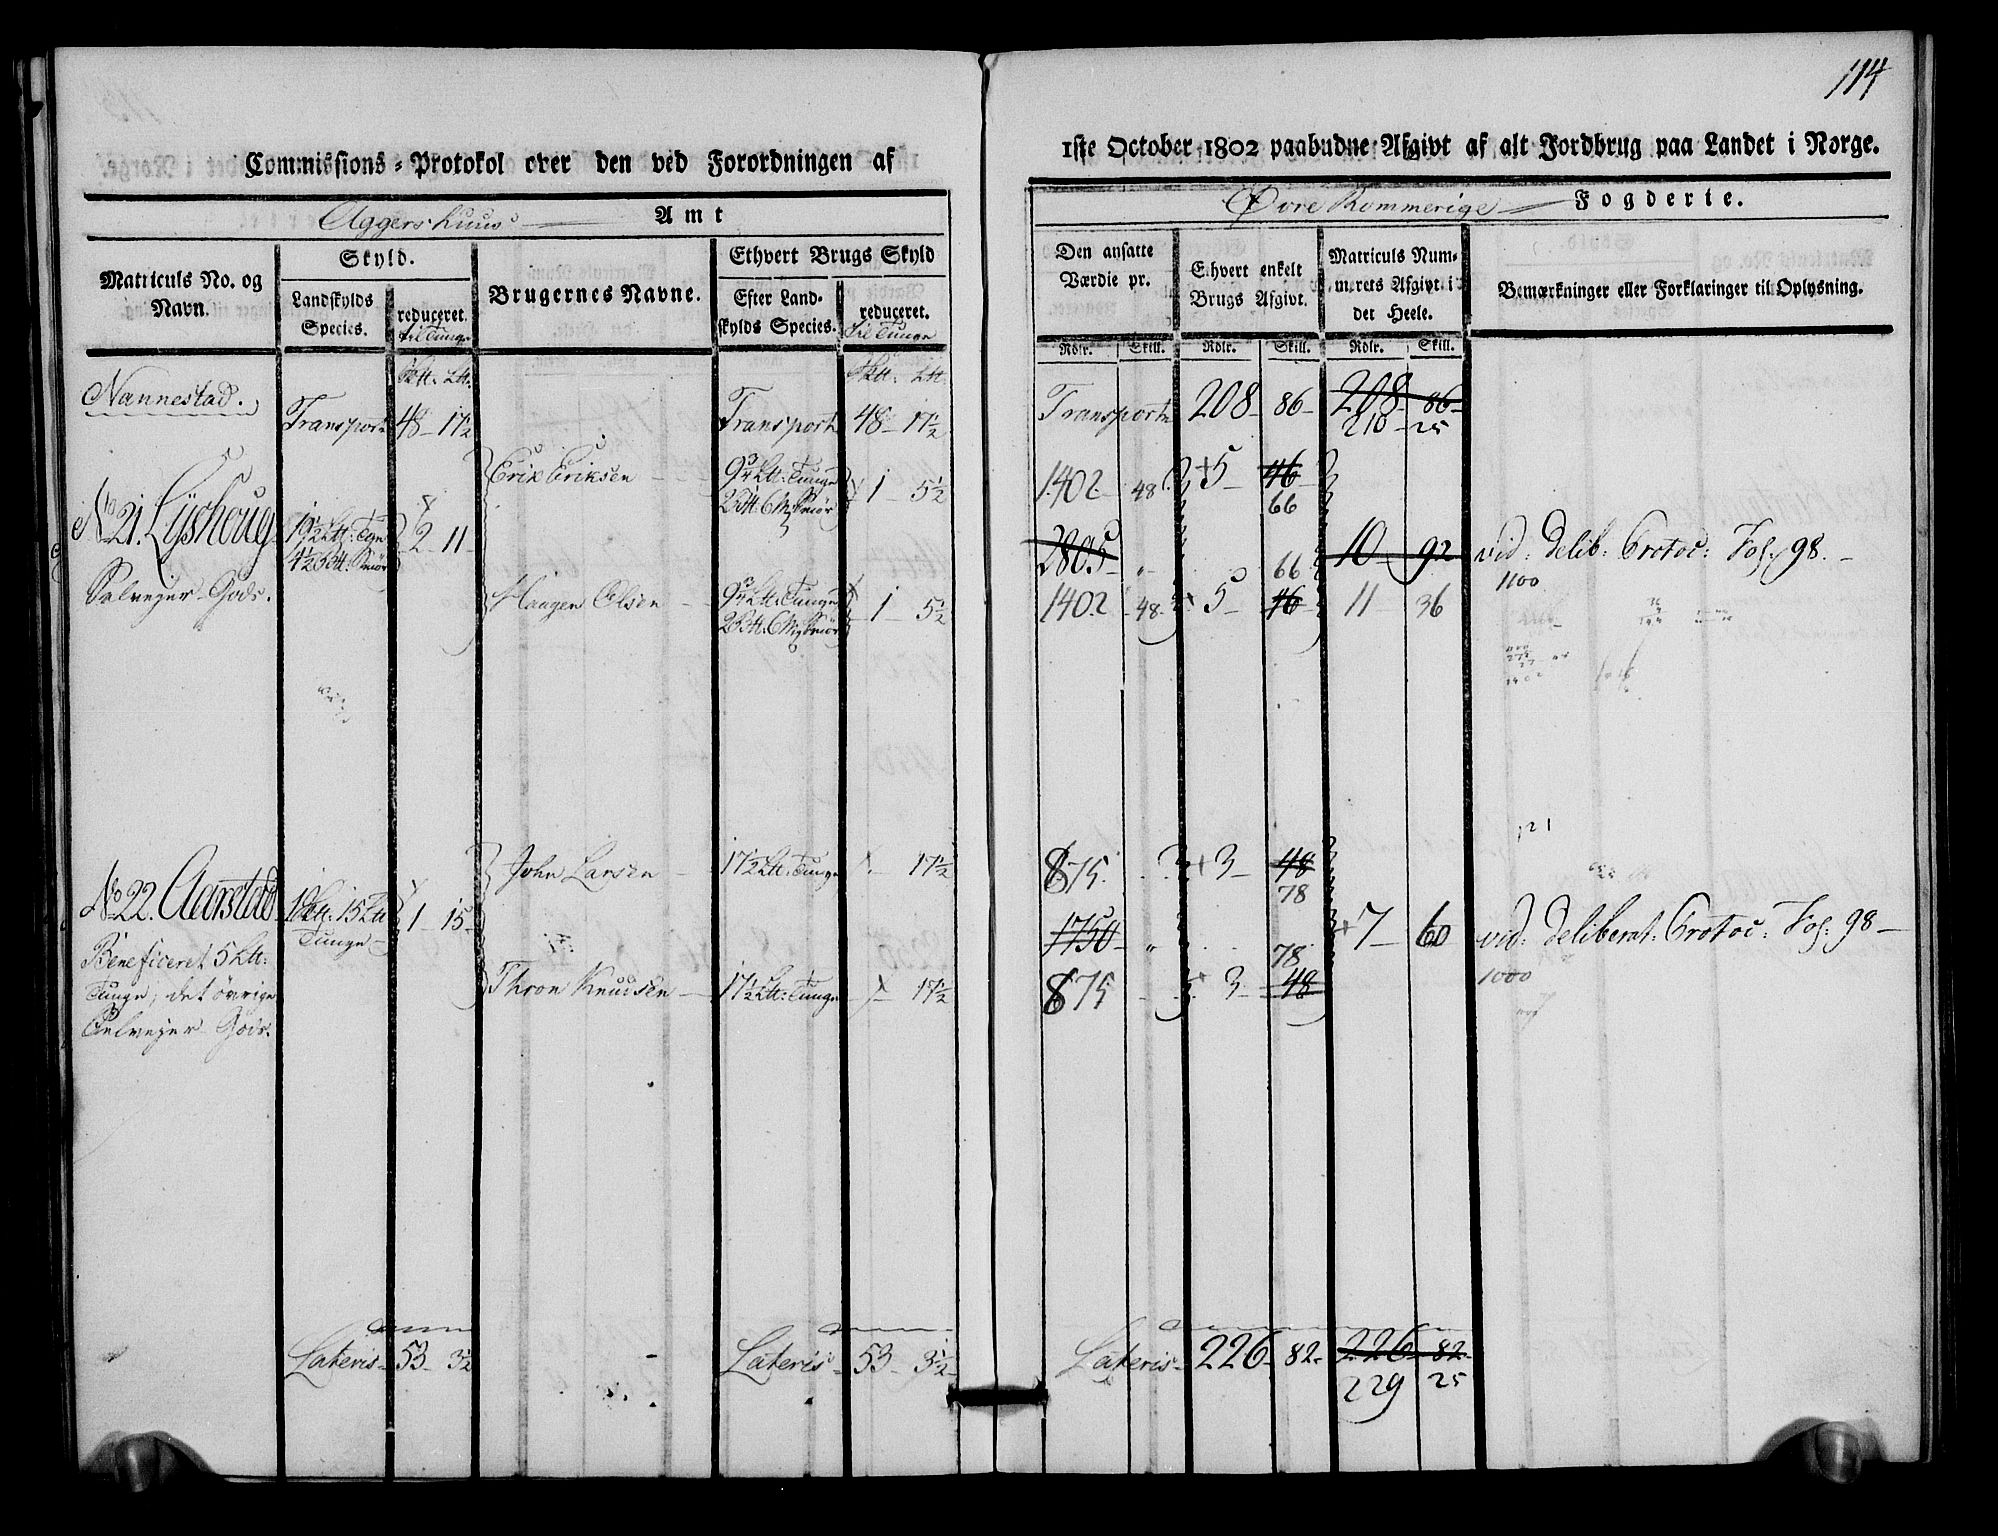 114
Commissions-Protokol over den ved Forordningen af
1ste October 1802 paabudne Afgivt af alt Jordbrug paa Landet i Norge.
Aggershuus Amt
Øvre Rommerige Fogderie.
Matriculs No. og Navn.
Skyld.
Landskylds Species.
reduceret. til Tunge
Brugernes Navne.
Ethvert Brugs Skyld
Efter Landskylds Species.
reduceret. til Tunge
Den ansatte Værdie pr.
Ethvert enkelt Brugs Afgivt.
Matriculs Nummerets Afgivt i det Heele.
Bemærkninger eller Forklaringer til Oplysning.
Rdlr. Skill. Rdlr. Skill. Rdlr. Skill.
Nannestad.
Transport 48 - 17½ Transport 48 - 17½ Transport 208 - 86 - 208 - 86 -
210 - 25
Erik Eriksen - 9¾ Ltt: Tunge 1 - 5½ 1402 - 48 5 46
66
No 21. Lyshoug 19½ Ltt: Tge 2 - 11 - 2805 - „ 10 - 92 vid: delib: Protoc: Fol: 98. -
66 1100
Selvejer-Gods. Haagen Olsen - 9¾ Ltt: Tunge 1 - 5½ 1402 - 48 - 5 - 46 11 36
121
John Larsen - 17½ Ltt: Tunge 17½ 875. 3 - 48
78
No 22. Aarstad 15 Ltt Tunge - 1 - 15 - 1750 - „ 7 - 60 vid: deliberat: Protoc: Fol: 98 -
78 1000
Beneficeret 5 Ltt: Thron Knudsen - 17½ Ltt: Tunge 17½ 875 3 - 48
Tunge, det øvrige
Selvejer-Gods.
Lateris - 53 - 3½ Lateris - 53 - 3½ - Lateris - 226 - 82 - 226 - 82 -
229 25